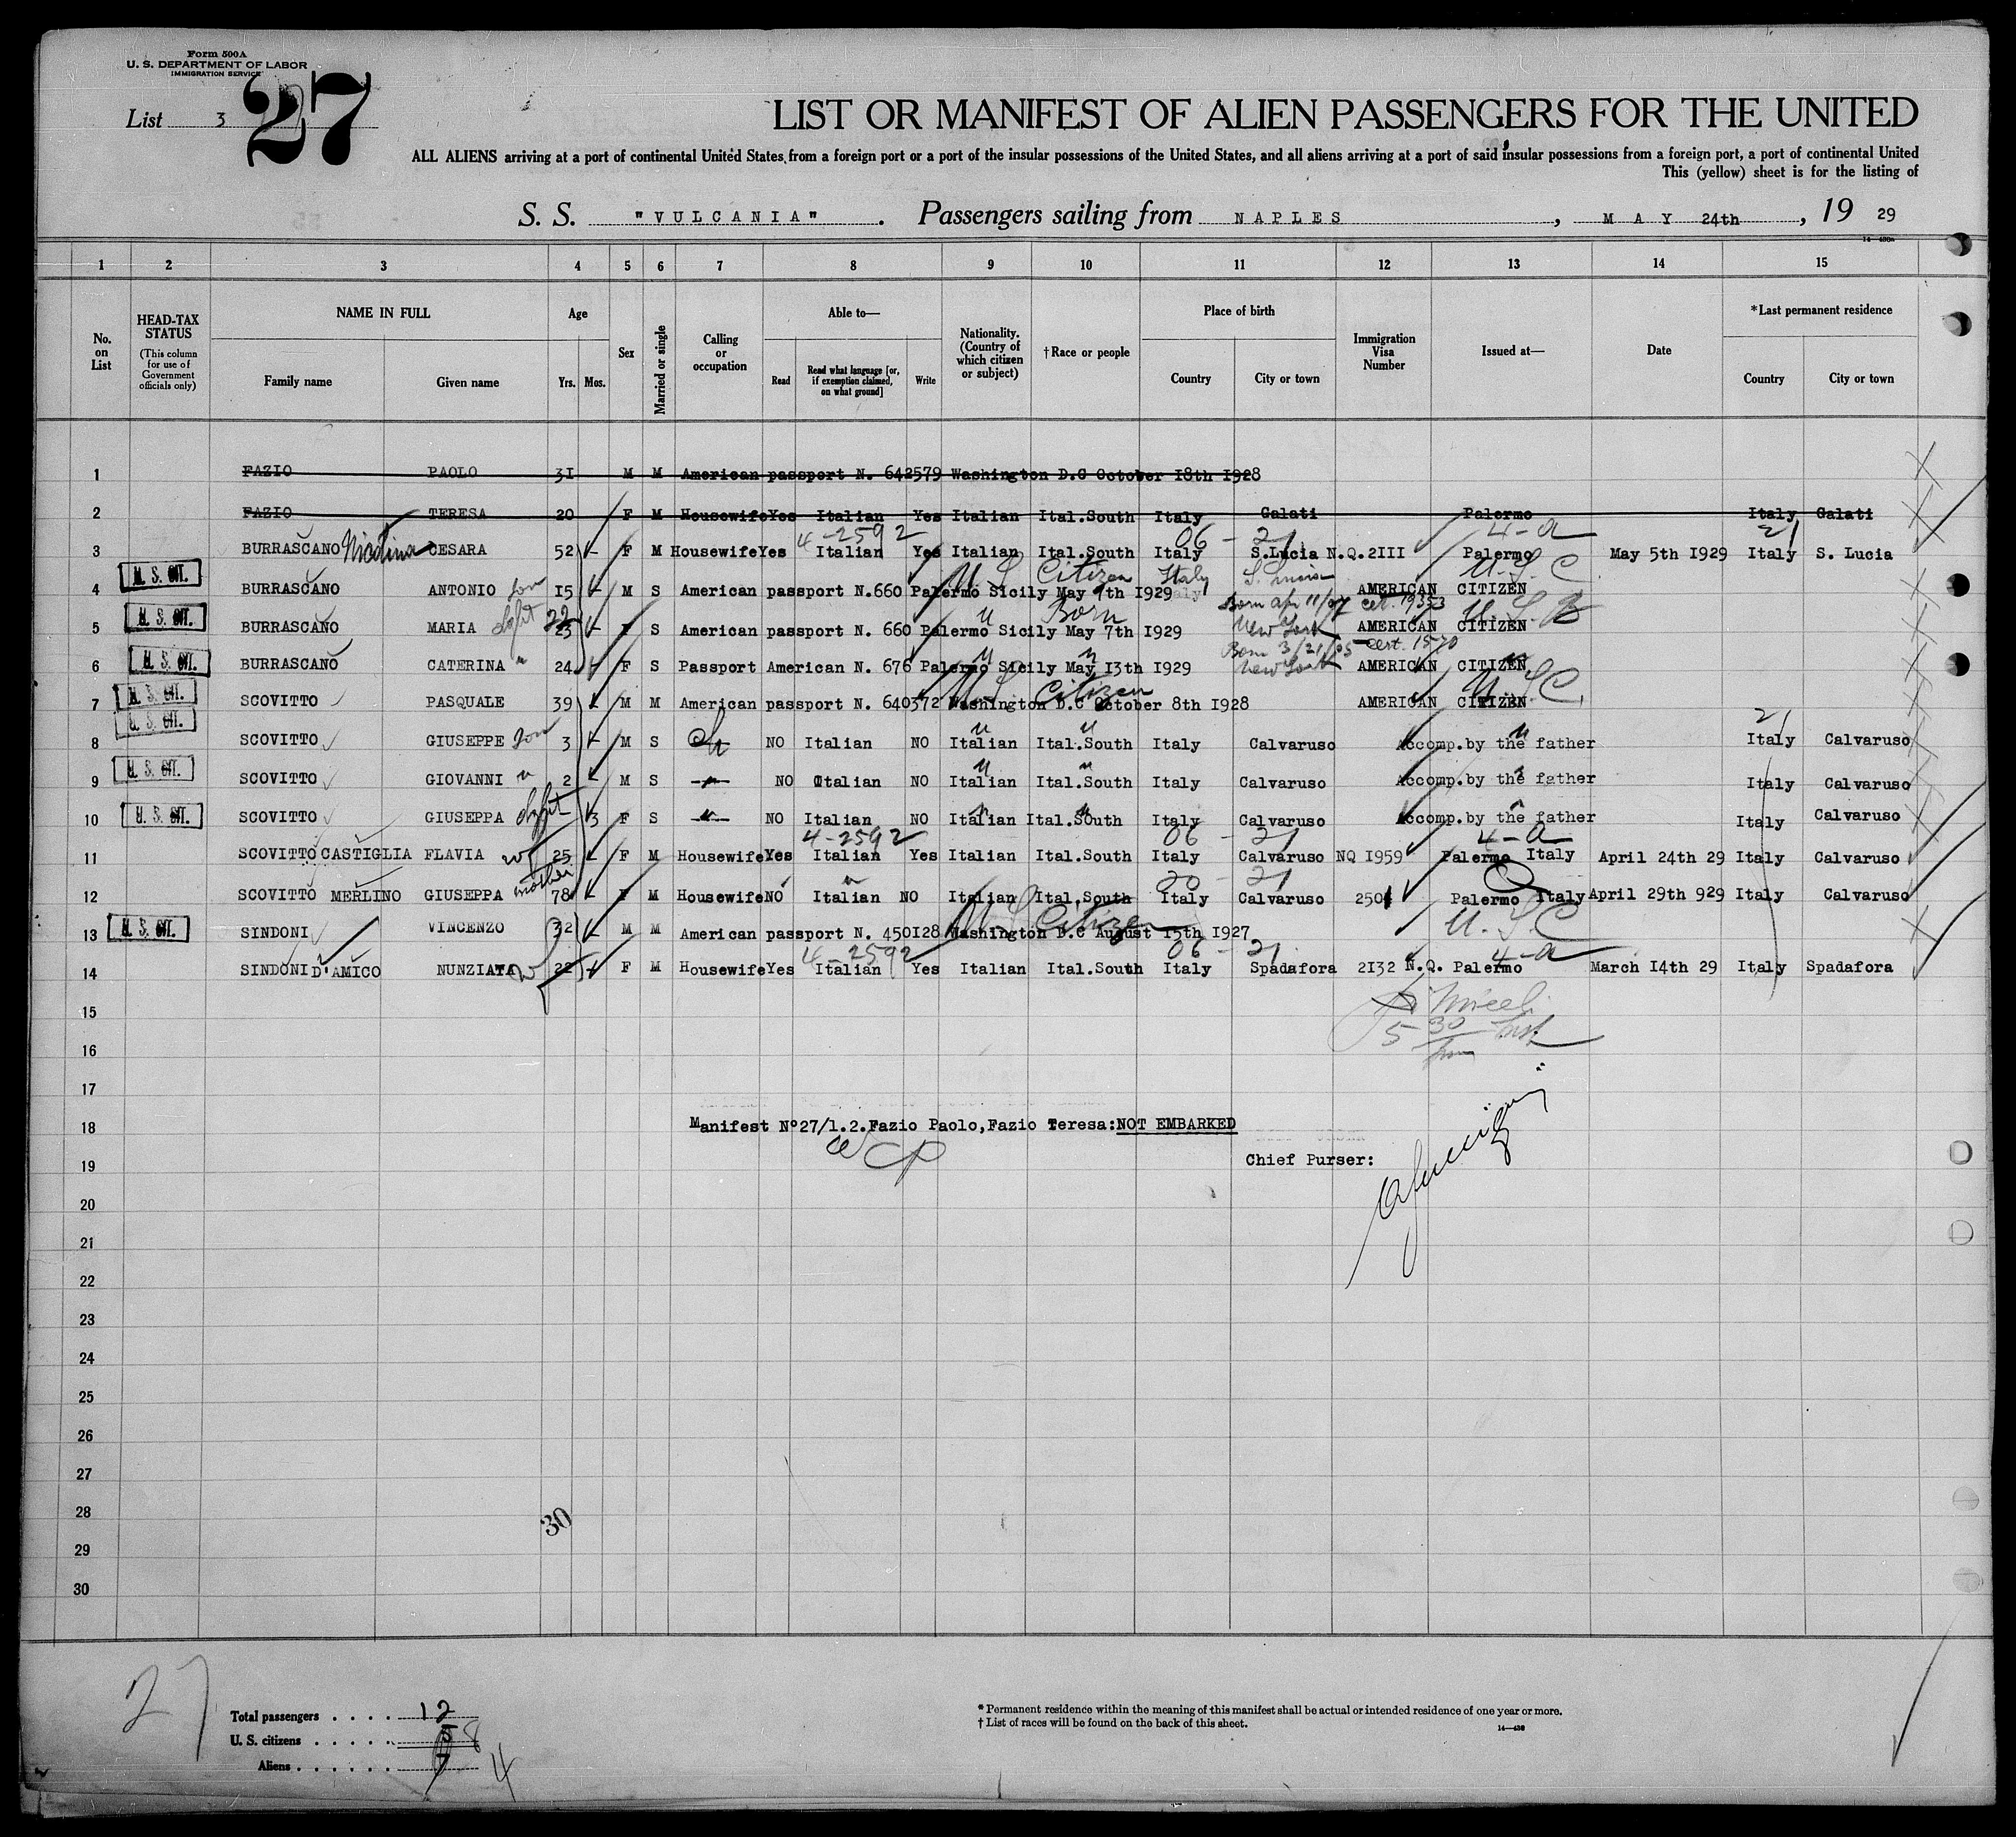 Form 500A
U. S. DEPARTMENT OF LABOR
IMMIGRATION SERVICE
List 3
27
LIST OR MANIFEST OF ALIEN PASSENGERS FOR THE UNITED
ALL ALIENS arriving at a port of continental United States from a foreign port or a port of the insular possessions of the United States, and all aliens arriving at a port of said insular possessions from a foreign port, a port of continental United
This (yellow) sheet is for the listing of
S. S. "VULCANIA". Passengers sailing from NAPLES, MAY 24th, 19 29
1 2 3 4 5 6 7 8 9 10 11 12 13 14 15
No. on List
HEAD-TAX STATUS (This column for use of Government officials only)
NAME IN FULL Family name Given name
Age Yrs. Mos.
Sex
Married or single
Calling or occupation
Able to— Read Read what language [or, if exemption claimed, on what ground] Write
Nationality. (Country of which citizen or subject)
† Race or people
Place of birth Country City or town
Immigration Visa Number
Issued at—
Date
*Last permanent residence Country City or town
1 FAZIO PAOLO 31 M M American passport N. 642579 Washington D.C October 18th 1928
2 FAZIO TERESA 20 F M Housewife Yes Italian Yes Italian Ital.South Italy Galati Palermo Italy Galati
4-2592 06 - 21 4-a 21
3 BURRASCANO Nicolina CESARA 52 F M Housewife Yes Italian Yes Italian Ital.South Italy S.Lucia N.Q.2III Palermo May 5th 1929 Italy S. Lucia
U S Citizen Italy S. Lucia U.S.C
4 U. S. CIT. BURRASCANO ANTONIO son 15 M S American passport N.660 Palermo Sicily May 7th 1929 AMERICAN CITIZEN
Born Apr 11/07 cet. 19353
5 U. S. CIT. BURRASCANO MARIA dght 22 23 F S American passport N. 660 Palermo Sicily May 7th 1929 Born New York AMERICAN CITIZEN
Born 3/21/05 cert. 1570
6 U. S. CIT. BURRASCANO CATERINA " 24 F S Passport American N. 676 Palermo Sicily May 13th 1929 New York AMERICAN CITIZEN
7 U. S. CIT. SCOVITTO PASQUALE 39 M M American passport N. 640372 Washington D.C October 8th 1928 U S Citizen AMERICAN CITIZEN U.S.C.
8 U. S. CIT. SCOVITTO GIUSEPPE son 3 M S NO Italian NO Italian Ital.South Italy Calvaruso Accomp.by the father 21 Italy Calvaruso
9 U. S. CIT. SCOVITTO GIOVANNI " 2 M S NO Italian NO Italian Ital.South Italy Calvaruso Accomp.by the father Italy Calvaruso
10 U. S. CIT. SCOVITTO GIUSEPPA dght 3 F S NO Italian NO Italian Ital.South Italy Calvaruso Accomp.by the father Italy Calvaruso
4-2592 06 - 21 4-a
11 SCOVITTO CASTIGLIA FLAVIA wf 25 F M Housewife Yes Italian Yes Italian Ital.South Italy Calvaruso NQ 1959 Palermo Italy April 24th 29 Italy Calvaruso
20 - 21
12 SCOVITTO MERLINO GIUSEPPA mother 78 F M Housewife NO Italian NO Italian Ital.South Italy Calvaruso 2504 Palermo Italy April 29th 929 Italy Calvaruso
13 U. S. CIT. SINDONI VINCENZO 32 M M American passport N. 450128 Washington D.C August 15th 1927 U S Citizen U.S.C
4-2592 06 - 21 4-a
14 SINDONI D'AMICO NUNZIATA w 22 F M Housewife Yes Italian Yes Italian Ital.South Italy Spadafora 2132 N.Q. Palermo March 14th 29 Italy Spadafora
15
16
17
18 Manifest N°27/1.2.Fazio Paolo,Fazio Teresa:NOT EMBARKED
19 Chief Purser:
20
21
22
23
24
25
26
27
28 30
29
30
27
Total passengers . . . . 12
U. S. citizens . . . . . 5 8
Aliens . . . . . . 7 4
* Permanent residence within the meaning of this manifest shall be actual or intended residence of one year or more.
† List of races will be found on the back of this sheet.
14—438